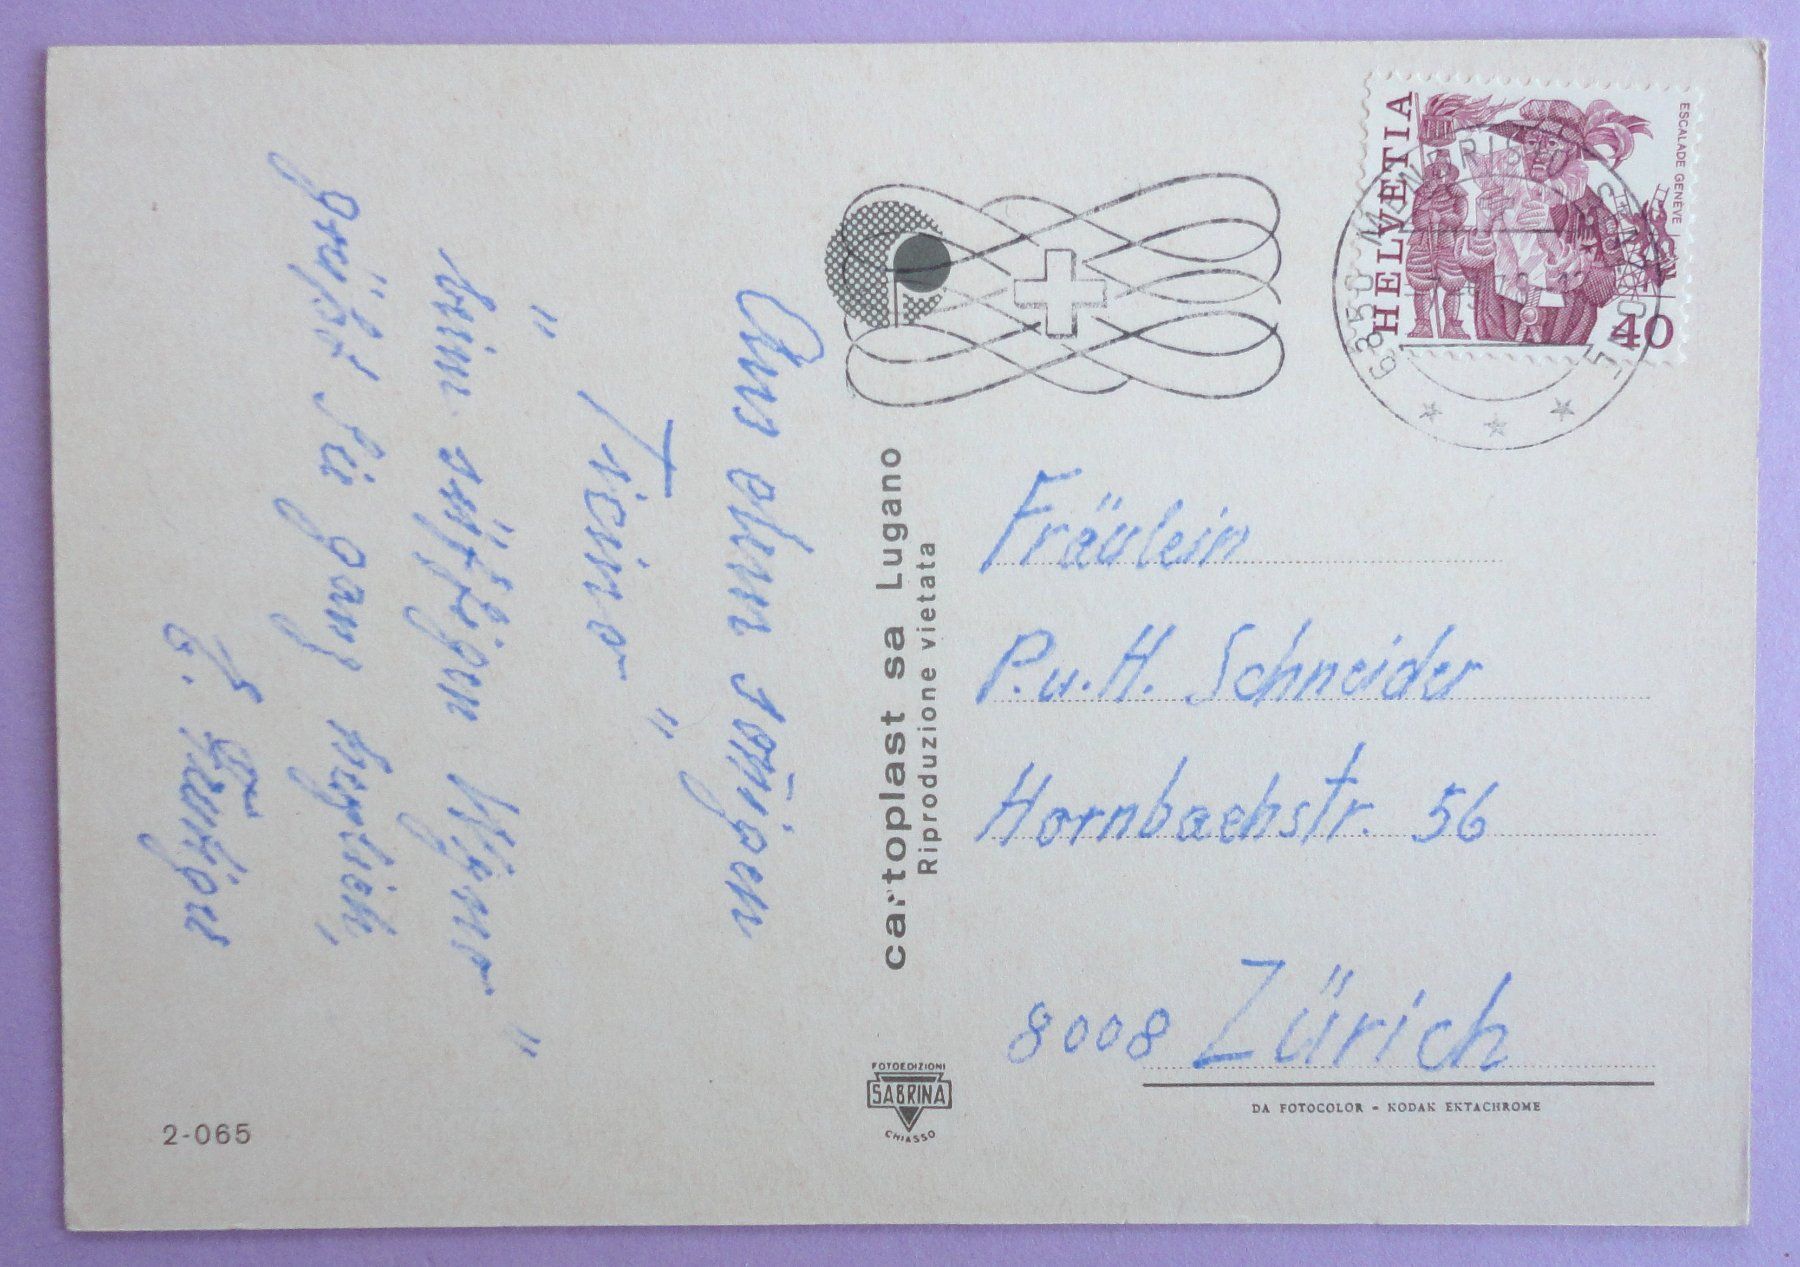 HELVETIA
ESCALADE GENÈVE
40
6850 MENDRISIO
Aus dem sonnigen
"Ticino"
beim süffigen
grüßt Sie ganz herzlich,
cartoplast sa Lugano
Riproduzione vietata
Fräulein
P. u. H. Schneider
Hornbachstr. 56
8008 Zürich
FOTOEDIZIONI
SABRINA
CHIASSO
DA FOTOCOLOR - KODAK EKTACHROME
2-065